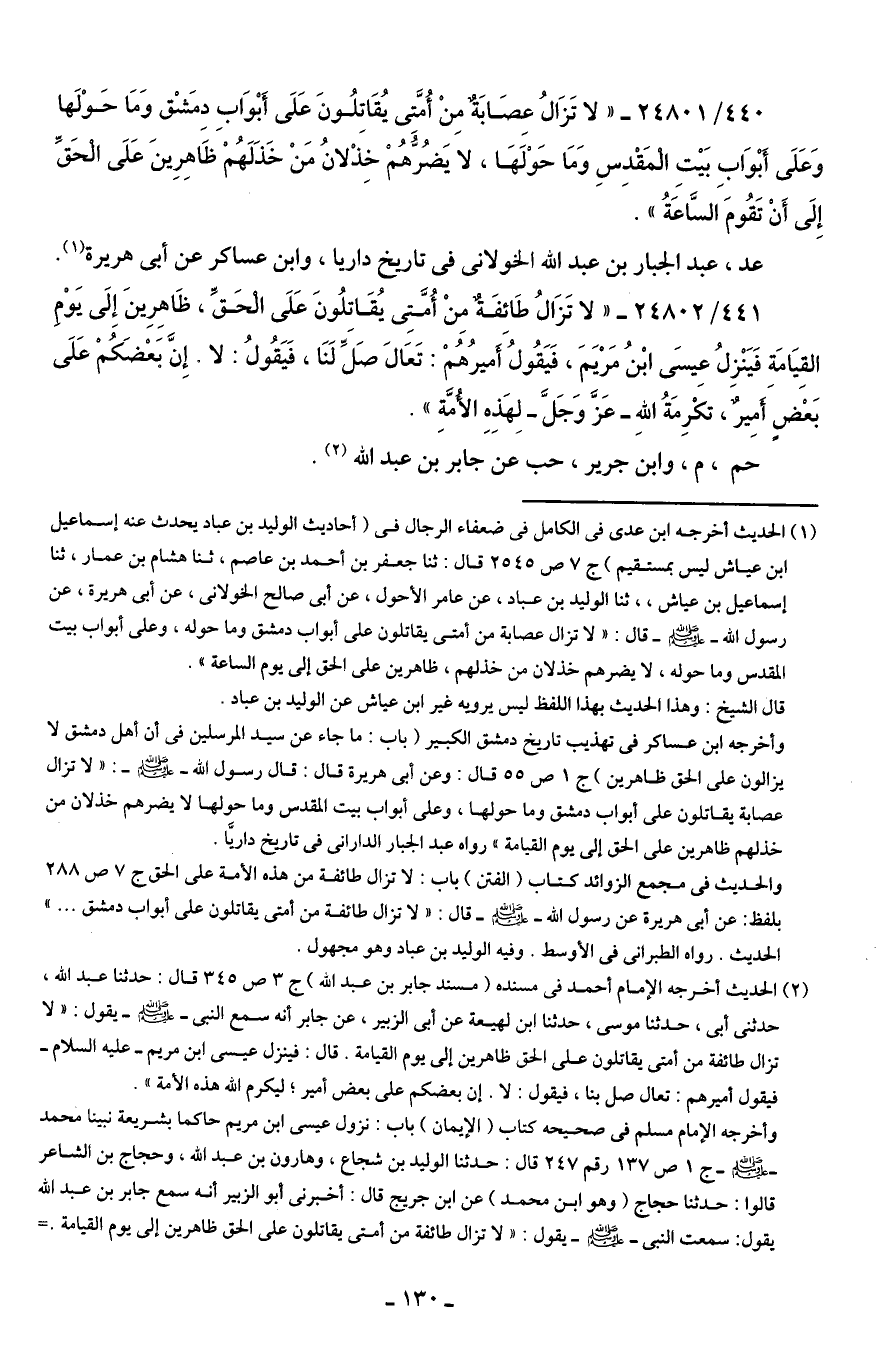 ٢٤٨٠١/٤٤٠ ـ « لا تَزَالُ عِصَابَةٌ مِنْ أُمَّتِى يُقَاتِلُونَ عَلَى أَبْوَابِ دِمَشْقِ وَمَا حَوْلَها
وَعَلَى أَبْوَابِ بَيْتِ المَقْدِسِ وَمَا حَوْلَهَا ، لا يَضُرُّهُمْ خِذْلانُ مَنْ خَذَلَهُمْ ظَاهِرِينَ عَلَى الْحَقِّ
إِلَى أَنْ تَقُومَ السَّاعَةُ » .
عد ، عبد الجبار بن عبد الله الخولانى فى تاريخ داريا ، وابن عساكر عن أبى هريرة(١).
٢٤٨٠٢/٤٤١ ـ « لا تَزَالُ طَائِفَةٌ مِنْ أُمَّتِى يُقَاتِلُونَ عَلَى الْحَقِّ ، ظَاهِرِينَ إِلَى يَوْمِ
القِيَامَةِ فَيَنْزِلُ عِيسَى ابْنُ مَرْيَمَ ، فَيَقُولُ أَمِيرُهُمْ : تَعَالَ صَلِّ لَنَا ، فَيَقُولُ : لا . إِنَّ بَعْضَكُمْ عَلَى
بَعْضٍ أَمِيرٌ ، تكْرِمَةُ اللهِ ـ عَزَّ وَجَلَّ ـ لِهَذِهِ الأُمَّةِ » .
حم ، م ، وابن جرير ، حب عن جابر بن عبد الله (٢) .
(١) الحديث أخرجه ابن عدى فى الكامل فى ضعفاء الرجال فى ( أحاديث الوليد بن عباد يحدث عنه إسماعيل
ابن عياش ليس بمستقيم ) ج ٧ ص ٢٥٤٥ قال : ثنا جعفر بن أحمد بن عاصم ، ثنا هشام بن عمار ، ثنا
إسماعيل بن عياش ، ، ثنا الوليد بن عباد ، عن عامر الأحول ، عن أبى صالح الخولانى ، عن أبى هريرة ، عن
رسول الله ـ ﷺ ـ قال : « لا تزال عصابة من أمتى يقاتلون على أبواب دمشق وما حوله ، وعلى أبواب بيت
المقدس وما حوله ، لا يضرهم خذلان من خذلهم ، ظاهرين على الحق إلى يوم الساعة » .
قال الشيخ : وهذا الحديث بهذا اللفظ ليس يرويه غير ابن عياش عن الوليد بن عباد .
وأخرجه ابن عساكر فى تهذيب تاريخ دمشق الكبير ( باب : ما جاء عن سيد المرسلين فى أن أهل دمشق لا
يزالون على الحق ظاهرين ) ج ١ ص ٥٥ قال : وعن أبى هريرة قال : قال رسول الله ـ ﷺ ـ : « لا تزال
عصابة يقاتلون على أبواب دمشق وما حولها ، وعلى أبواب بيت المقدس وما حولها لا يضرهم خذلان من
خذلهم ظاهرين على الحق إلى يوم القيامة » رواه عبد الجبار الدارانى فى تاريخ داريَّا .
والحديث فى مجمع الزوائد كتاب ( الفتن ) باب : لا تزال طائفة من هذه الأمة على الحق ج ٧ ص ٢٨٨
بلفظ: عن أبى هريرة عن رسول الله ـ ﷺ ـ قال : « لا تزال طائفة من أمتى يقاتلون على أبواب دمشق ... »
الحديث . رواه الطبرانى فى الأوسط . وفيه الوليد بن عباد وهو مجهول .
(٢) الحديث أخرجه الإمام أحمد فى مسنده ( مسند جابر بن عبد الله ) ج ٣ ص ٣٤٥ قال : حدثنا عبد الله ،
حدثنى أبى ، حدثنا موسى ، حدثنا ابن لهيعة عن أبى الزبير ، عن جابر أنه سمع النبى ـ ﷺ ـ يقول : « لا
تزال طائفة من أمتى يقاتلون على الحق ظاهرين إلى يوم القيامة . قال : فينزل عيسى ابن مريم ـ عليه السلام ـ
فيقول أميرهم : تعال صل بنا ، فيقول : لا . إن بعضكم على بعض أمير ؛ ليكرم الله هذه الأمة » .
وأخرجه الإمام مسلم فى صحيحه كتاب ( الإيمان ) باب : نزول عيسى ابن مريم حاكما بشريعة نبينا محمد
ـ ﷺ ـ ج ١ ص ١٣٧ رقم ٢٤٧ قال : حدثنا الوليد بن شجاع ، وهارون بن عبد الله ، وحجاج بن الشاعر
قالوا : حدثنا حجاج ( وهو ابن محمد ) عن ابن جريج قال : أخبرنى أبو الزبير أنه سمع جابر بن عبد الله
يقول: سمعت النبى ـ ﷺ ـ يقول : « لا تزال طائفة من أمتى يقاتلون على الحق ظاهرين إلى يوم القيامة .=
ـ ١٣٠ ـ